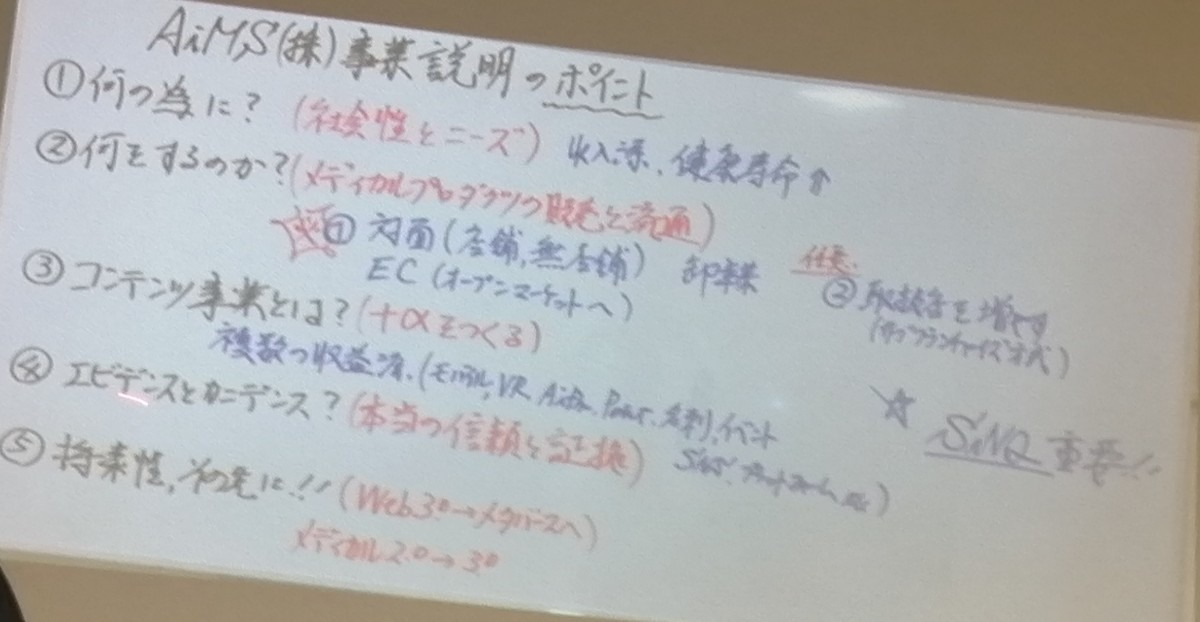 AiMS(株)事業説明のポイント
①何の為に? (社会性とニーズ) 収入源、健康寿命↑
②何をするのか?(メディカルプロダクツの販売と流通)
① 対面(店舗,無店舗) 卸事業
EC (オープンマーケットへ)
② 取扱者を増やす
③コンテンツ事業とは?(+αをつくる)
複数の収益源.(モバイル, VR イベント
④エビデンスとカニデンス?(本当の信頼と証拠)
☆ SiNQ 重要!!
⑤将来性,その先に!!(Web3.0→メタバースへ)
メディカル2.0→3.0